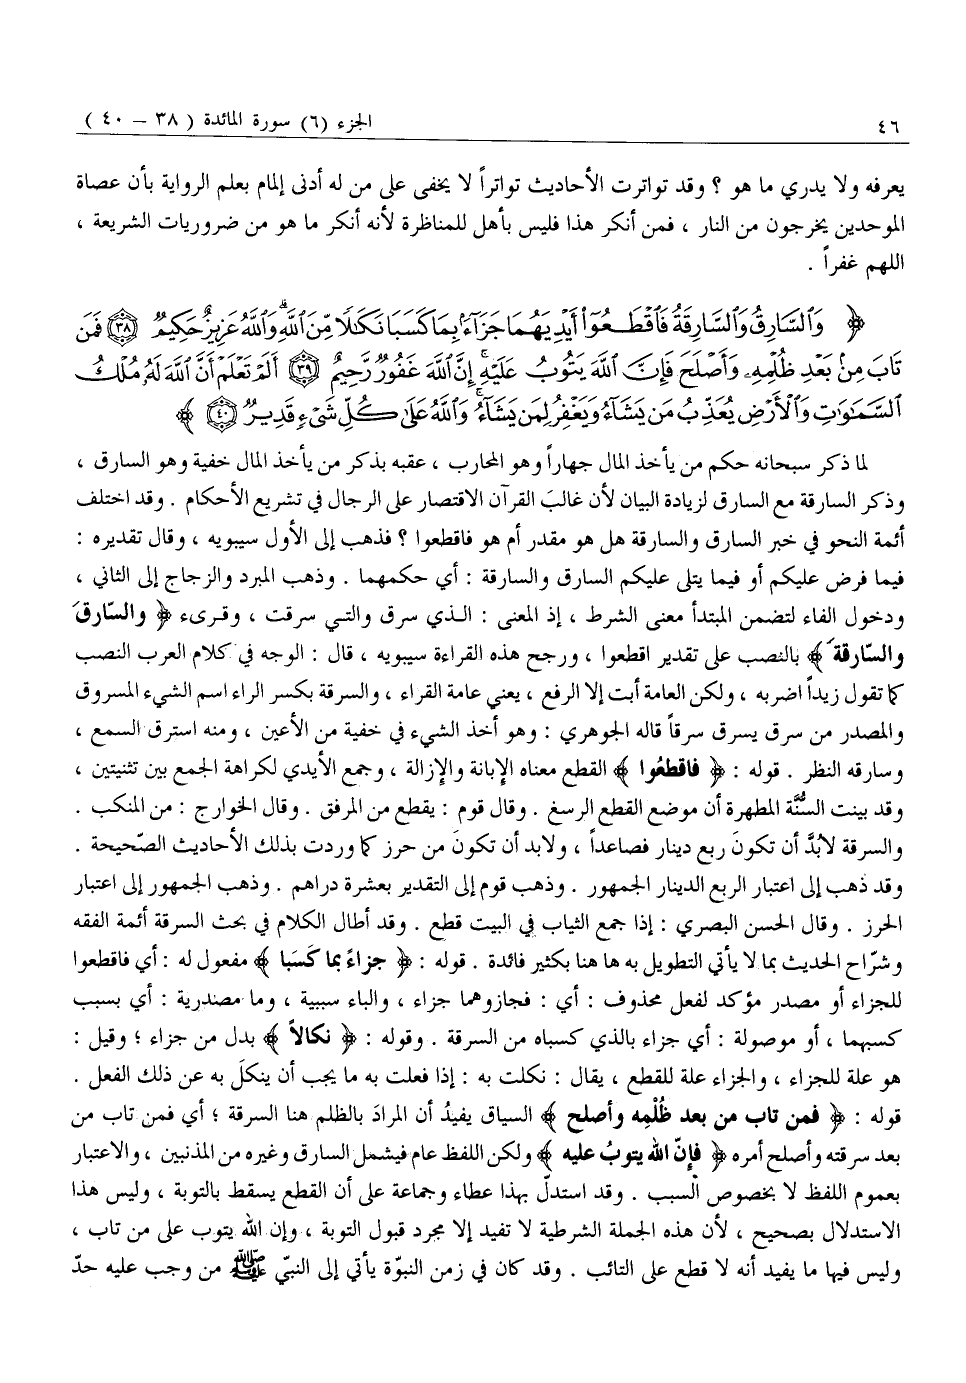 ٤٦ الجزء (٦) سورة المائدة ( ٣٨ – ٤٠ )
يعرفه ولا يدري ما هو ؟ وقد تواترت الأحاديث تواتراً لا يخفى على من له أدنى إلمام بعلم الرواية بأن عصاة
الموحدين يخرجون من النار ، فمن أنكر هذا فليس بأهل للمناظرة لأنه أنكر ما هو من ضروريات الشريعة ،
اللهم غفراً .
﴿ وَٱلسَّارِقُ وَٱلسَّارِقَةُ فَٱقْطَعُوٓا۟ أَيْدِيَهُمَا جَزَآءًۢ بِمَا كَسَبَا نَكَٰلًا مِّنَ ٱللَّهِ ۗ وَٱللَّهُ عَزِيزٌ حَكِيمٌ ﴿٣٨﴾ فَمَن
تَابَ مِنۢ بَعْدِ ظُلْمِهِۦ وَأَصْلَحَ فَإِنَّ ٱللَّهَ يَتُوبُ عَلَيْهِ ۚ إِنَّ ٱللَّهَ غَفُورٌ رَّحِيمٌ ﴿٣٩﴾ أَلَمْ تَعْلَمْ أَنَّ ٱللَّهَ لَهُۥ مُلْكُ
ٱلسَّمَٰوَٰتِ وَٱلْأَرْضِ يُعَذِّبُ مَن يَشَآءُ وَيَغْفِرُ لِمَن يَشَآءُ ۗ وَٱللَّهُ عَلَىٰ كُلِّ شَىْءٍ قَدِيرٌ ﴿٤٠﴾ ﴾
لما ذكر سبحانه حكم من يأخذ المال جهاراً وهو المحارب ، عقبه بذكر من يأخذ المال خفية وهو السارق ،
وذكر السارقة مع السارق لزيادة البيان لأن غالبَ القرآن الاقتصار على الرجال في تشريع الأحكام . وقد اختلف
أئمة النحو في خبر السارق والسارقة هل هو مقدر أم هو فاقطعوا ؟ فذهب إلى الأول سيبويه ، وقال تقديره :
فيما فرض عليكم أو فيما يتلى عليكم السارق والسارقة : أي حكمهما . وذهب المبرد والزجاج إلى الثاني ،
ودخول الفاء لتضمن المبتدأ معنى الشرط ، إذ المعنى : الذي سرق والتي سرقت ، وقرىء ﴿ والسّارقَ
والسّارقةَ ﴾ بالنصب على تقدير اقطعوا ، ورجح هذه القراءة سيبويه ، قال : الوجه في كلام العرب النصب
كما تقول زيداً اضربه ، ولكن العامة أبت إلا الرفع ، يعني عامة القراء ، والسرقة بكسر الراء اسم الشيء المسروق
والمصدر من سرق يسرق سرقاً قاله الجوهري : وهو أخذ الشيء في خفية من الأعين ، ومنه استرق السمع ،
وسارقه النظر . قوله : ﴿ فاقطعُوا ﴾ القطع معناه الإبانة والإزالة ، وجمع الأيدي لكراهة الجمع بين تثنيتين ،
وقد بينت السُّنَّة المطهرة أن موضع القطع الرسغ . وقال قوم : يقطع من المرفق . وقال الخوارج : من المنكب .
والسرقة لابُدَّ أن تكونَ ربع دينار فصاعداً ، ولابد أن تكونَ من حرز كما وردت بذلك الأحاديث الصّحيحة .
وقد ذهب إلى اعتبار الربع الدينار الجمهور . وذهب قوم إلى التقدير بعشرة دراهم . وذهب الجمهور إلى اعتبار
الحرز . وقال الحسن البصري : إذا جمع الثياب في البيت قطع . وقد أطال الكلام في بحث السرقة أئمة الفقه
وشرّاح الحديث بما لا يأتي التطويل به ها هنا بكثير فائدة . قوله : ﴿ جزاءً بما كَسَبا ﴾ مفعول له : أي فاقطعوا
للجزاء أو مصدر مؤكد لفعل محذوف : أي : فجازوهما جزاء ، والباء سببية ، وما مصدرية : أي بسبب
كسبهما ، أو موصولة : أي جزاء بالذي كسباه من السرقة . وقوله : ﴿ نكالاً ﴾ بدل من جزاء ؛ وقيل :
هو علة للجزاء ، والجزاء علة للقطع ، يقال : نكلت به : إذا فعلت به ما يجب أن ينكلَ به عن ذلك الفعل .
قوله : ﴿ فمن تاب من بعد ظُلْمِه وأصلح ﴾ السياق يفيدُ أن المرادَ بالظلم هنا السرقة ؛ أي فمن تاب من
بعد سرقته وأصلح أمره ﴿ فإنّ الله يتوبُ عليه ﴾ ولكن اللفظ عام فيشمل السارق وغيره من المذنبين ، والاعتبار
بعموم اللفظ لا بخصوص السبب . وقد استدلّ بهذا عطاء وجماعة على أن القطع يسقط بالتوبة ، وليس هذا
الاستدلال بصحيح ، لأن هذه الجملة الشرطية لا تفيد إلا مجرد قبول التوبة ، وإن الله يتوب على من تاب ،
وليس فيها ما يفيد أنه لا قطع على التائب . وقد كان في زمن النبوّة يأتي إلى النبيّ ﷺ من وجب عليه حدّ